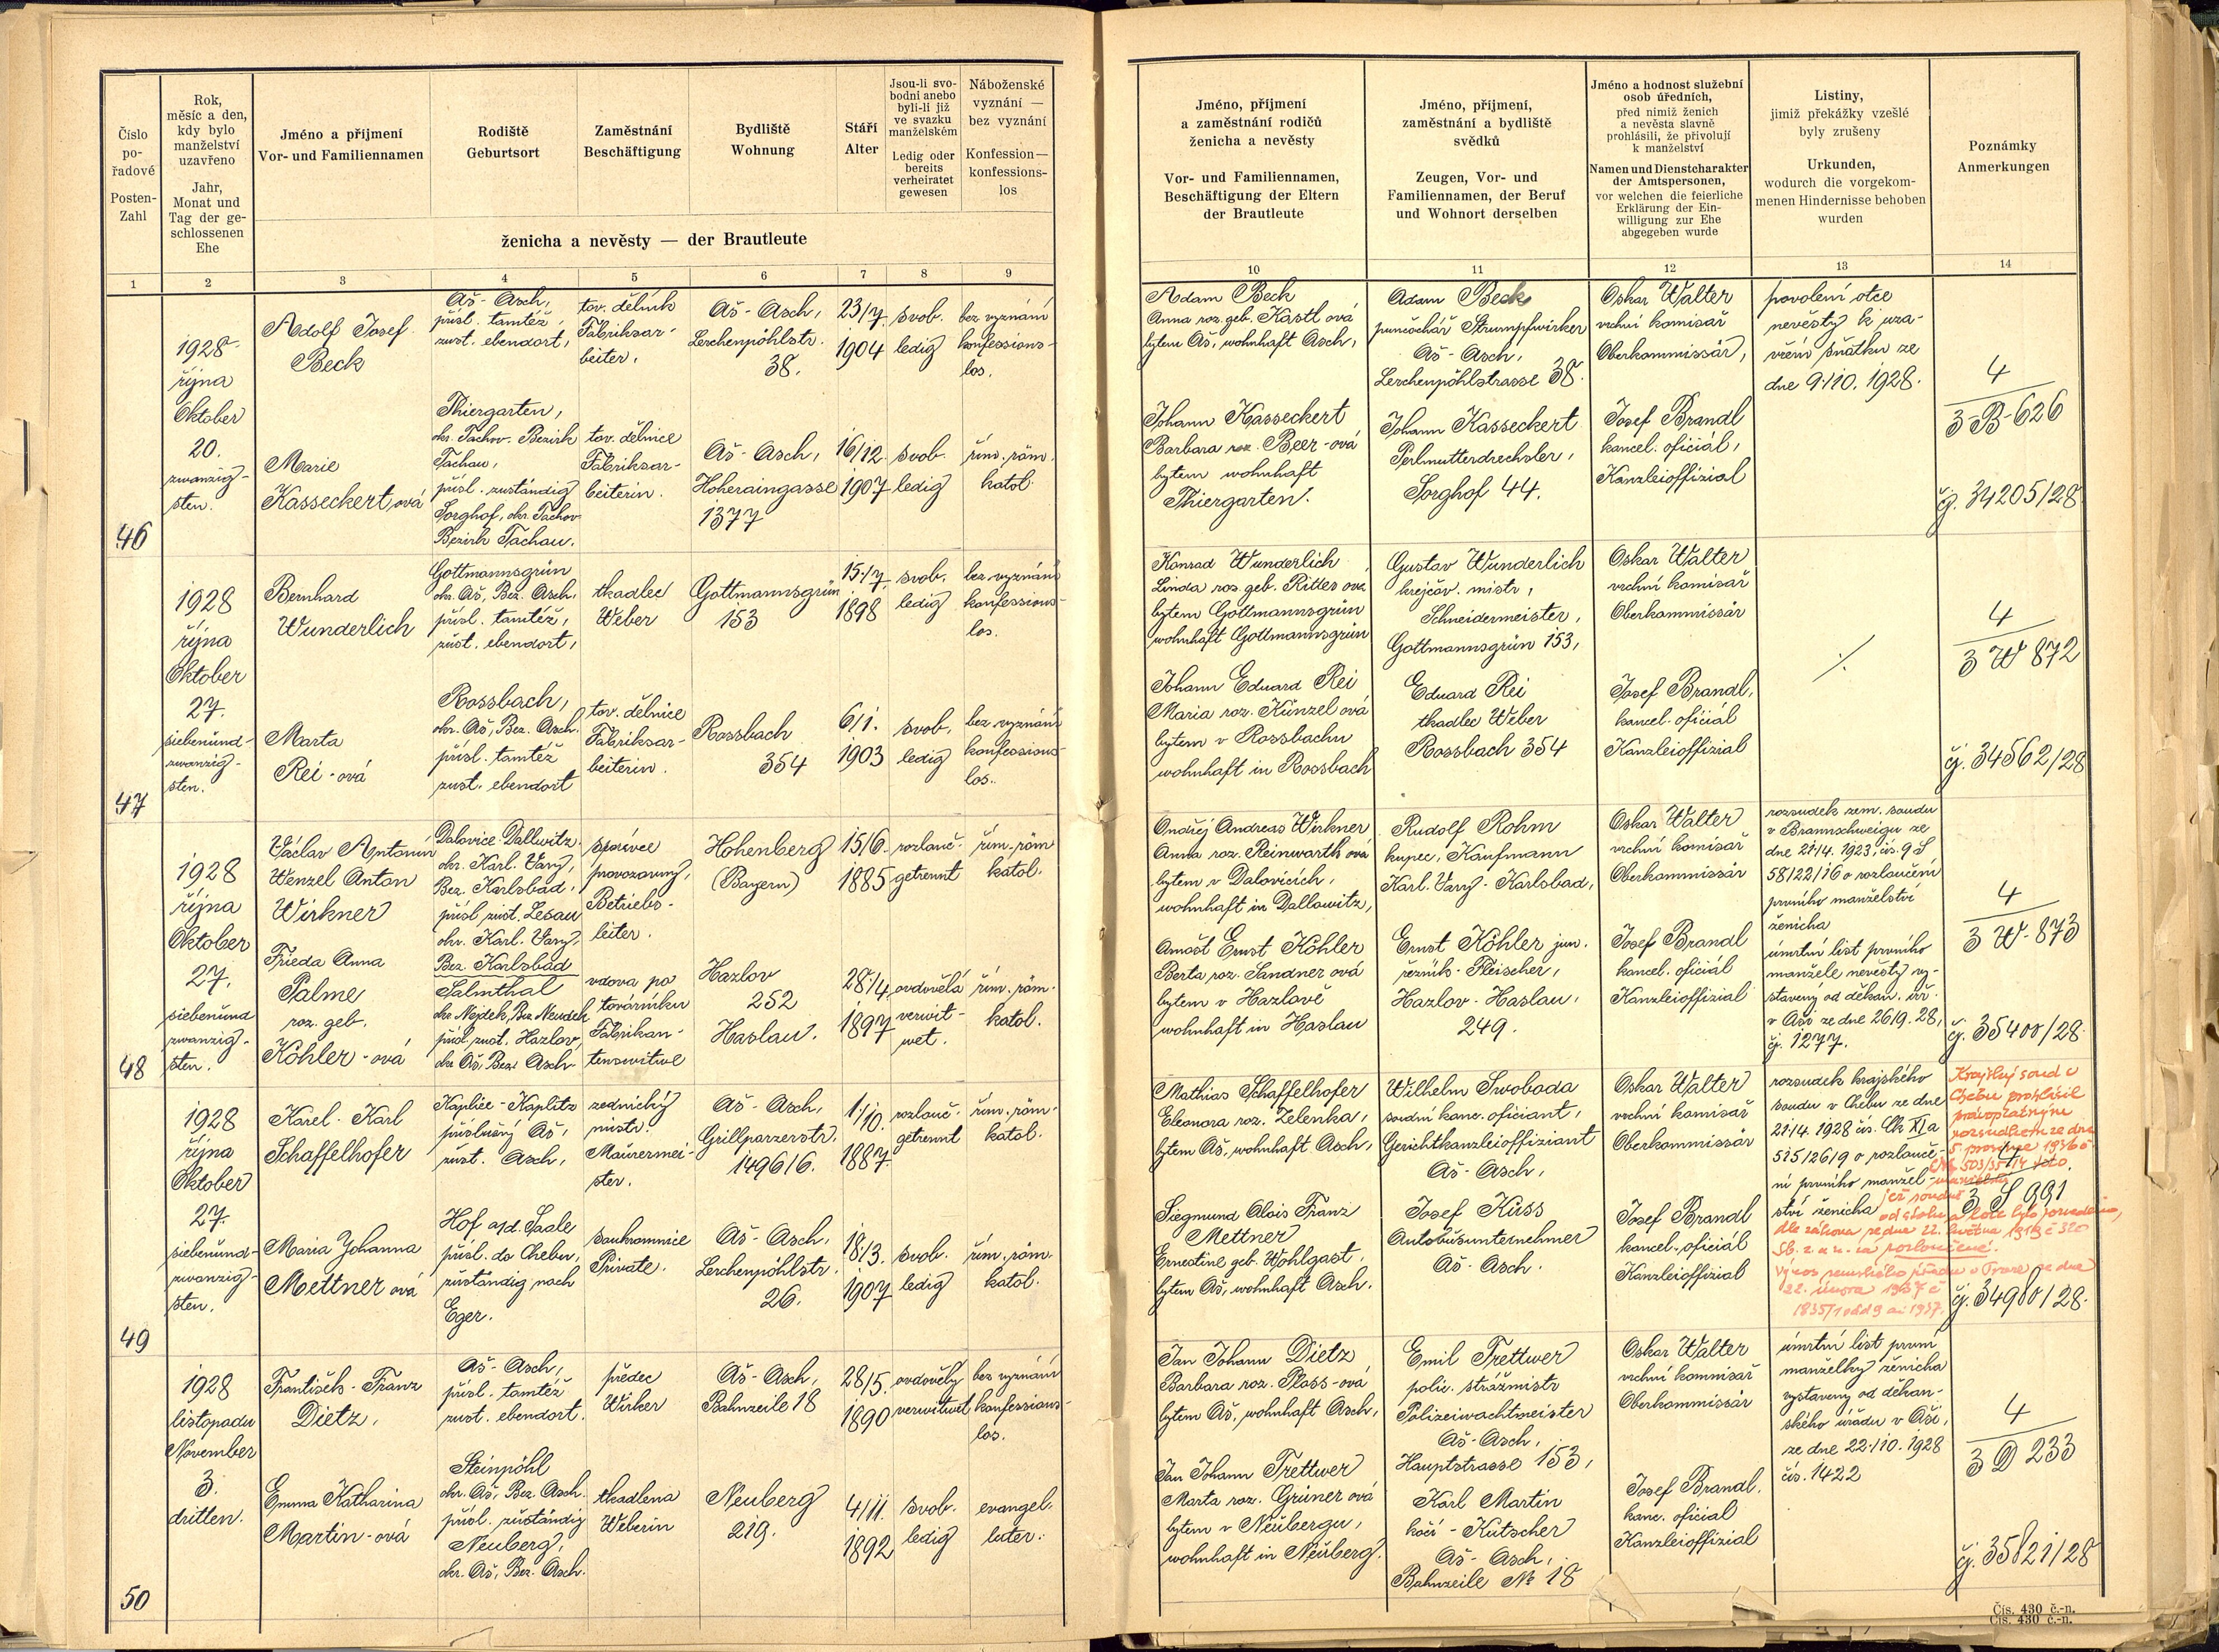 Číslo
po-
řadové
Posten-
Zahl
Rok,
měsíc a den,
kdy bylo
manželství
uzavřeno
Jahr,
Monat und
Tag der ge-
schlossenen
Ehe
Jméno a příjmení
Vor- und Familiennamen
Rodiště
Geburtsort
Zaměstnání
Beschäftigung
Bydliště
Wohnung
Stáří
Alter
Jsou-li svo-
bodni anebo
byli-li již
ve svazku
manželském
Ledig oder
bereits
verheiratet
gewesen
Náboženské
vyznání —
bez vyznání
Konfession—
konfessions-
los
ženicha a nevěsty — der Brautleute
1 2 3 4 5 6 7 8 9
46
1928
října
Oktober
20.
zwanzig-
sten.
Adolf Josef
Beck
Aš - Asch,
přísl. tamtéž,
zust. ebendort,
tov. dělník
Fabriksar-
beiter.
Aš - Asch,
Lerchenpöhlstr.
38.
23/7.
1904
svob.
ledig
bez vyznání
konfessions-
los.
Marie
Kasseckert,ová
Thiergarten,
okr. Tachov. Bezirk
Tachau,
přísl. zuständig
Sorghof, okr. Tachov
Bezirk Tachau.
tov. dělnice
Fabriksar-
beiterin.
Aš - Asch,
Hoheraingasse
1377
16/12.
1907
svob.
ledig
řím. röm.
katol.
47
1928
října
Oktober
27.
siebenund-
zwanzig-
sten.
Bernhard
Wunderlich
Gottmannsgrün
okr. Aš, Bez. Asch,
přísl. tamtéž,
zust. ebendort,
tkadlec
Weber
Gottmannsgrün
153
15./7.
1898
svob.
ledig
bez vyznání
konfessions-
los.
Marta
Rei - ová
Rossbach,
okr. Aš, Bez. Asch.
přísl. tamtéž
zust. ebendort
tov. dělnice
Fabriksar-
beiterin.
Rossbach
354
6/1.
1903
svob.
ledig
bez vyznání
konfessions-
los.
48
1928
října
Oktober
27.
siebenund
zwanzig-
sten.
Václav Antonín
Wenzel Anton
Wirkner
Dalovice-Dallwitz
okr. Karl. Vary,
Bez. Karlsbad,
přísl. zust. Lesau
okr. Karl. Vary,
Bez. Karlsbad
správce
provozovny,
Betriebs-
leiter.
Hohenberg
(Bayern)
15/6.
1885
rozlouč.
getrennt
řím. röm
katol.
Frieda Anna
Palme
roz. geb.
Köhler - ová
Salmthal
okr. Nejdek, Bez. Neudek
přísl. zust. Hazlov,
okr. Aš, Bez. Asch.
vdova po
továrníku
Fabrikan-
tenswitwe
Hazlov
252
Haslau.
28./4
1897
ovdovělá
verwit-
wet.
řím. röm.
katol.
49
1928
října
Oktober
27.
siebenund-
zwanzig-
sten.
Karel - Karl
Schaffelhofer
Kaplice - Kaplitz
příslušný Aš,
zust. Asch,
zednický
mistr.
Maurermei-
ster.
Aš - Asch,
Grillparzerstr.
1496/6.
1./10.
1887
rozlouč.
getrennt
řím. röm.
katol.
Maria Johanna
Mettner ová
Hof a/d. Saale
přísl. do Chebu,
zuständig nach
Eger.
soukromnice
Private.
Aš - Asch,
Lerchenpöhlstr.
26.
18./3.
1907
svob.
ledig
řím. röm.
katol.
50
1928
listopadu
November
3.
dritten.
František - Franz
Dietz,
Aš - Asch,
přísl. tamtéž
zust. ebendort.
předec
Wirker
Aš - Asch,
Bahnzeile 18
28/5.
1890
ovdovělý
verwitwet
bez vyznání
konfessions-
los.
Emma Katharina
Martin - ová
Steinpöhl
okr. Aš, Bez. Asch.
přísl. zuständig
Neuberg,
okr. Aš, Bez. Asch.
tkadlena
Weberin
Neuberg
219.
4/11.
1892
svob.
ledig
evangel.
luter.
Jméno, příjmení
a zaměstnání rodičů
ženicha a nevěsty
Vor- und Familiennamen,
Beschäftigung der Eltern
der Brautleute
Jméno, příjmení,
zaměstnání a bydliště
svědků
Zeugen, Vor- und
Familiennamen, der Beruf
und Wohnort derselben
Jméno a hodnost služební
osob úředních,
před nimiž ženich
a nevěsta slavně
prohlásili, že přivolují
k manželství
Namen und Dienstcharakter
der Amtspersonen,
vor welchen die feierliche
Erklärung der Ein-
willigung zur Ehe
abgegeben wurde
Listiny,
jimiž překážky vzešlé
byly zrušeny
Urkunden,
wodurch die vorgekom-
menen Hindernisse behoben
wurden
Poznámky
Anmerkungen
10 11 12 13 14
Adam Beck
Anna roz. geb. Kastl ová
bytem Aš, wohnhaft Asch,
Adam Beck
punčochář Strumpfwirker
Aš - Asch,
Lerchenpöhlstrasse 38.
Oskar Walter
vrchní komisař
Oberkommissär,
povolení otce
nevěsty k uza-
vření sňatku ze
dne 9./10. 1928.
4
3-B-626
Johann Kasseckert
Barbara roz. Beer - ová
bytem wohnhaft
Thiergarten.
Johann Kasseckert
Perlmutterdrechsler,
Sorghof 44.
Josef Brandl
kancel. oficiál,
Kanzleioffizial
čj. 34205/28.
Konrad Wunderlich
Linda roz. geb. Ritter ová
bytem Gottmannsgrün
wohnhaft Gottmannsgrün
Gustav Wunderlich
krejčov. mistr,
Schneidermeister,
Gottmannsgrün 153,
Oskar Walter
vrchní komisař
Oberkommissär
·/.
4
3 W 872
Johann Eduard Rei
Maria roz. Künzel ová
bytem v Rossbachu
wohnhaft in Rossbach
Eduard Rei
tkadlec Weber
Rossbach 354
Josef Brandl,
kancel. oficiál
Kanzleioffizial
čj. 34562/28
Ondřej Andreas Wirkner
Anna roz. Reinwarth ová
bytem v Dalovicích,
wohnhaft in Dallowitz,
Rudolf Rohm
kupec, Kaufmann
Karl. Vary - Karlsbad,
Oskar Walter
vrchní komisař
Oberkommissär
rozsudek zem. soudu
v Braunschweigu ze
dne 21./4. 1923, čís. 9 S
58/22/16 o rozloučení
prvního manželství
ženicha
4
3 W - 873
Arnošt Ernst Köhler
Berta roz. Sandner ová
bytem v Hazlově
wohnhaft in Haslau
Ernst Köhler jun.
řezník - Fleischer,
Hazlov - Haslau,
249.
Josef Brandl
kancel. oficiál
Kanzleioffizial
úmrtní list prvního
manžele nevěsty vy-
stavený od děkan. úř.
v Aši ze dne 26/9. 28,
čj. 1277.
čj. 35400/28.
Mathias Schaffelhofer
Eleonora roz. Zelenka,
bytem Aš, wohnhaft Asch,
Wilhelm Swoboda
soudní kanc. oficiant,
Gerichtkanzleioffiziant
Aš - Asch,
Oskar Walter
vrchní komisař
Oberkommissär
rozsudek krajského
soudu v Chebu ze dne
21./4. 1928 čís. Ck XIa
515/26/9 o rozlouče-
ní prvního manžel-
ství ženicha
Krajský soud v
Chebu prohlásil
pravoplatným
rozsudkem ze dne
5. prosince 1936 č
503/35
4
3 S 991
dle zákona ze dne 22. května 1919 č 320
Sb. z. a n. za rozloučené.
Výnos zemského úřadu v Praze ze dne
22. února 1937 č
Siegmund Alois Franz
Mettner
Ernestine geb. Wohlgast,
bytem Aš, wohnhaft Asch.
Josef Küss
Autobusunternehmer
Aš - Asch.
Josef Brandl
kancel. oficiál
Kanzleioffizial
čj. 34980/28.
Jan Johann Dietz
Barbara roz. Ploss - ová
bytem Aš, wohnhaft Asch,
Emil Trettwer
polic. strážmistr
Polizeiwachtmeister
Aš - Asch,
Hauptstrasse 153,
Oskar Walter
vrchní komisař
Oberkommissär
úmrtní list první
manželky ženicha
vystavený od děkan-
ského úřadu v Aši,
ze dne 22./10. 1928
čís. 1422
4
3 D 233
Jan Johann Trettwer
Marta roz. Grüner ová
bytem v Neubergu,
wohnhaft in Neuberg.
Karl Martin
kočí - Kutscher
Aš - Asch,
Bahnzeile № 18
Josef Brandl,
kanc. oficial
Kanzleioffizial
čj. 35821/28
Čís. 430 č.-n.
Čís. 430 č.-n.